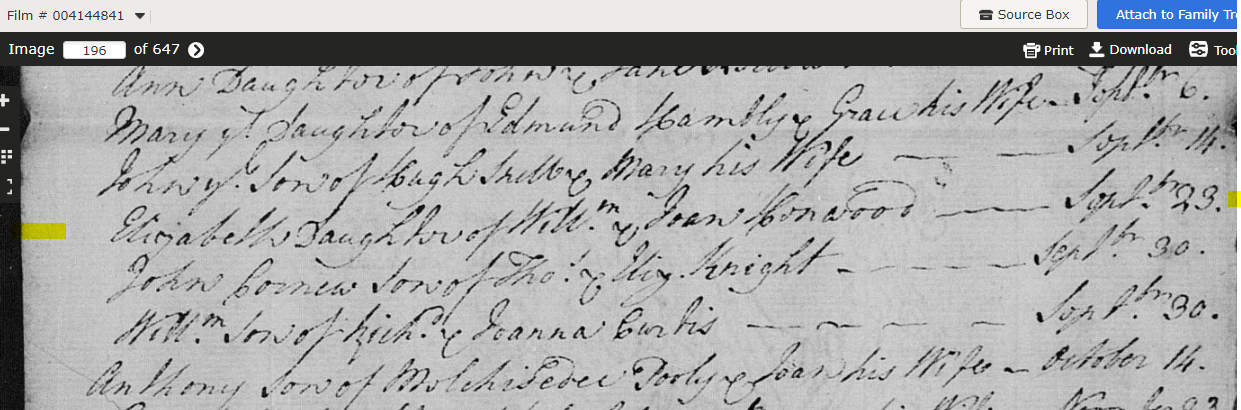 Film # 004144841
Source Box
Attach to Family Tre
Image 196 of 647
Print
Download
Tool
Ann Daughter of John & Jane
Mary yᵉ Daughter of Edmund Hambly & Grace his Wife Septbr 6.
John yᵉ Son of Hugh & Mary his Wife — — — Septbr 14.
Elizabeth Daughter of Willm & Joan Conwood — — Septbr 23.
John Cornew Son of Tho.s & Eliz Knight - - - - - Septbr 30.
Willm Son of Richd & Joanna Curtis — — — — Septbr 30.
Anthony Son of Molchisedec Pooly & Joan his Wife — October 14.
his Wife